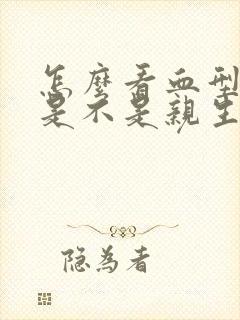 怎麼看血型
是不是親生
隐為者